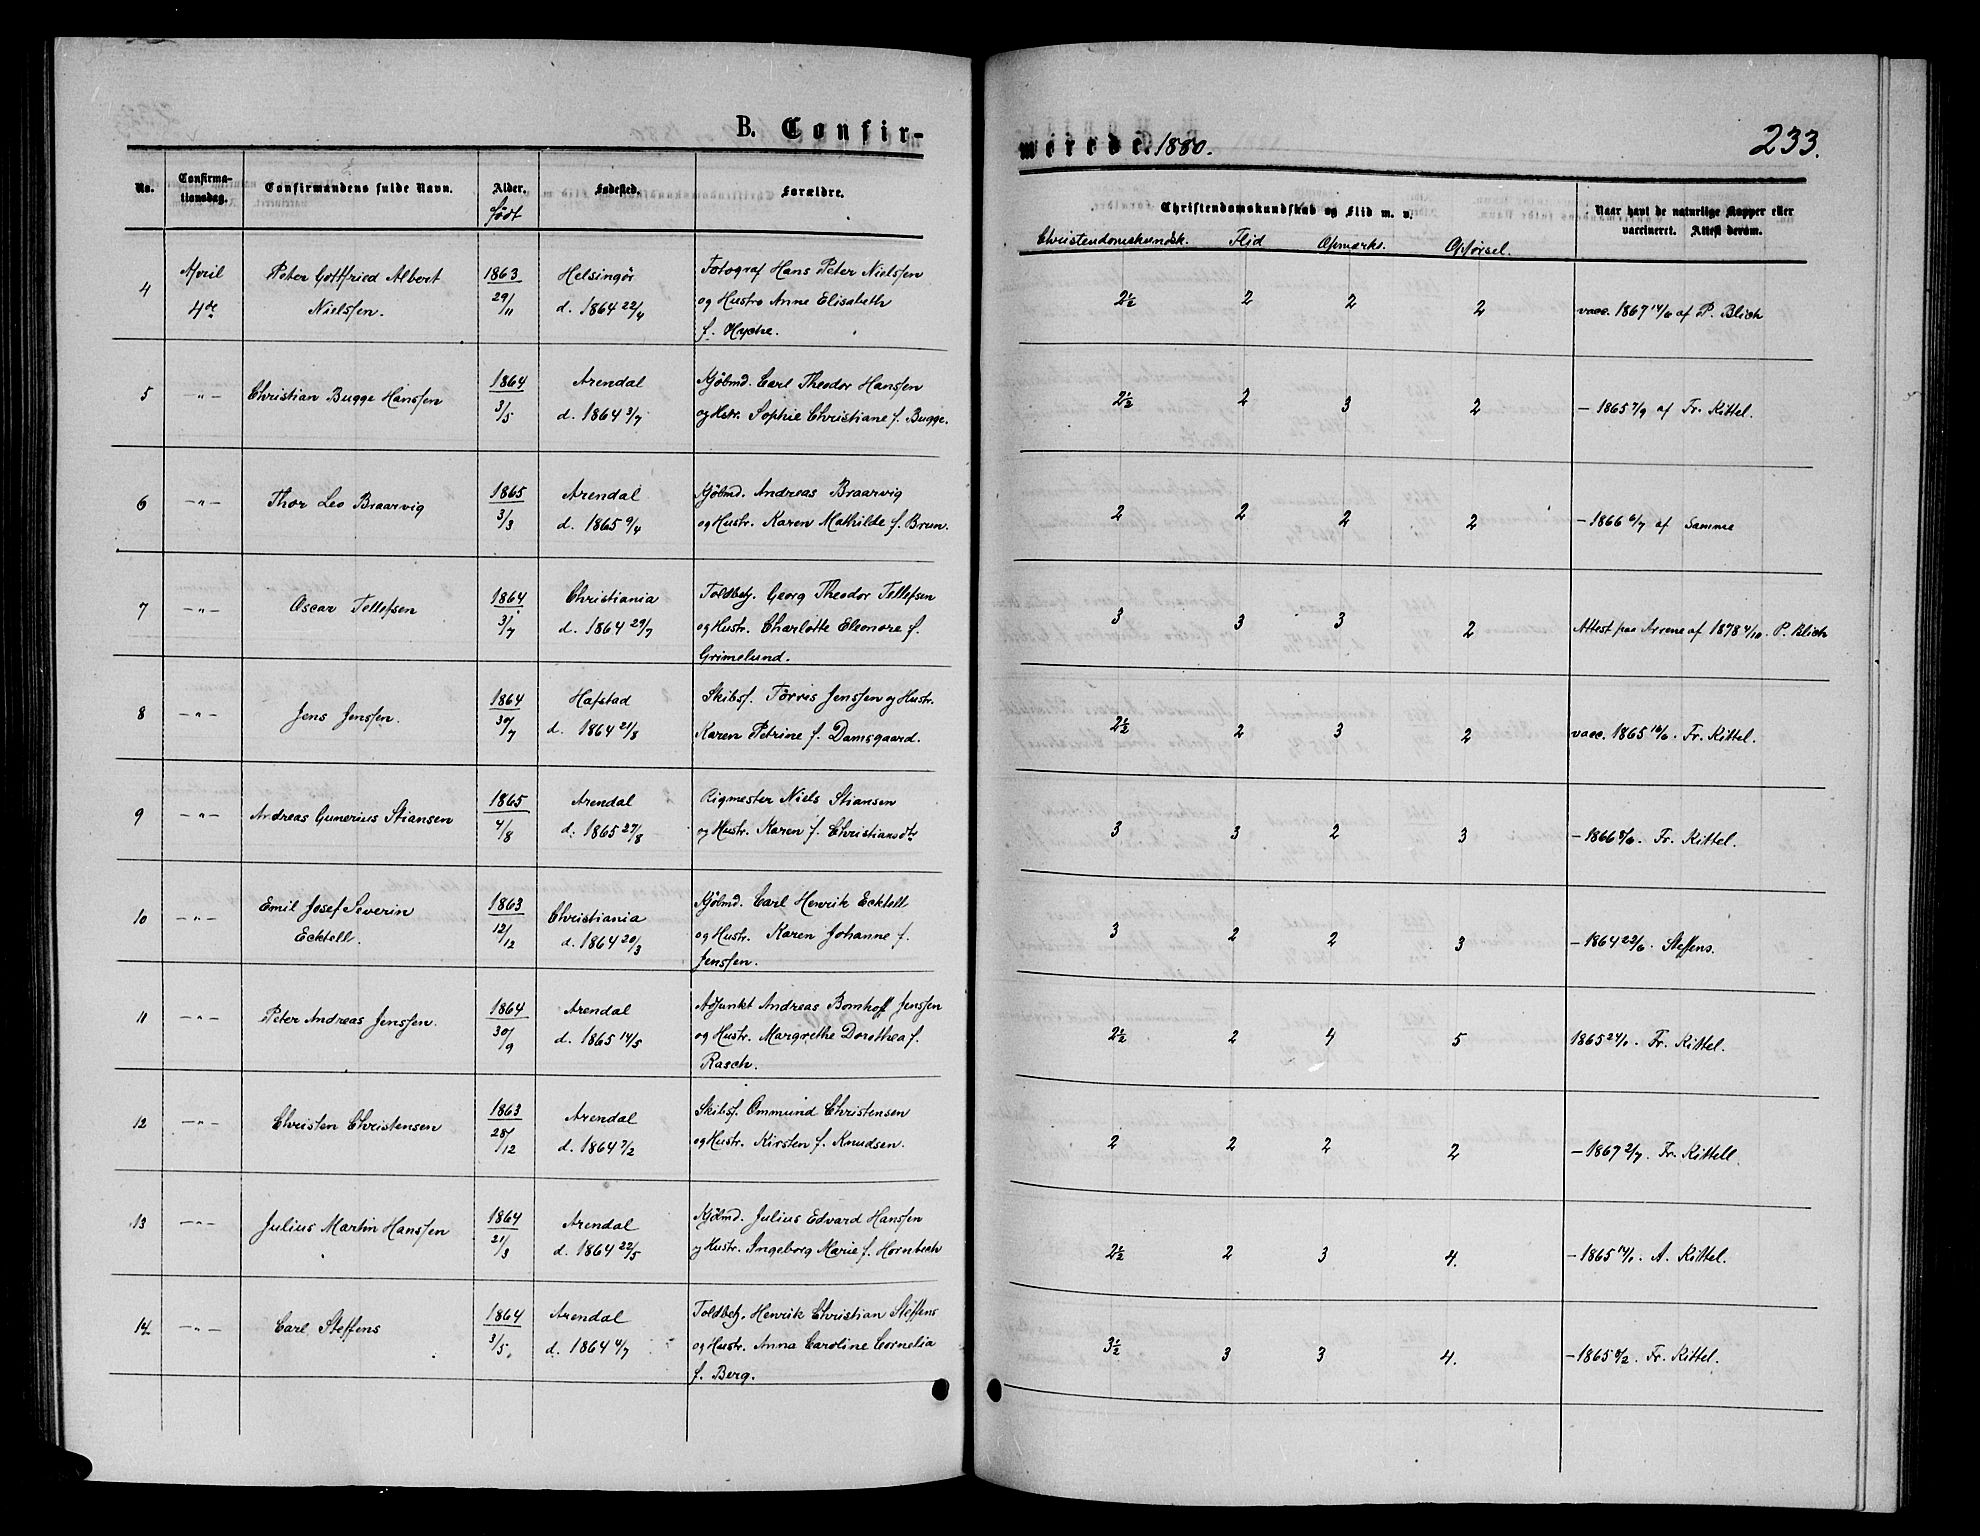 B. Confir-
merede. 1880.
233.
No.
Confirma-
tionsdag.
Confirmandens fulde Navn.
Alder.
født
Fødested.
Forældre.
Christendomskundskab og Flid m. v.
Christendomskundsk. Flid Opmærks. Opførsel.
Naar havt de naturlige Kopper eller
vaccineret. Attest derom.
4 April Peter Gottfried Albert 1863 Helsingör Fotograf Hans Peter Nielsen
4de Nielsen. 29/11 d. 1864 22/4 og Hustro Anne Elisabeth
f. Hyche.
2½ 2 2 2 vacc. 1867 14/6 af P. Blich
5 -"- Christian Bugge Hanssen 1864 Arendal Kjöbmd. Carl Theodor Hanssen
3/5 d. 1864 3/7 og Hstr. Sophie Christiane f. Bugge.
2½ 2 3 2 - 1865 7/9 af Fr. Kittel.
6 -"- Thor Leo Braarvig 1865 Arendal Kjöbmd. Andreas Braarvig
3/3 d. 1865 9/4 og Hustr. Karen Mathilde f. Brun.
2 2 2 2 - 1866 6/7 af Samme
7 -"- Oscar Tellefsen 1864 Christiania Toldbetj. Georg Theodor Tellefsen
3/7 d. 1864 29/7 og Hustr. Charlotte Eleonore f.
Grimelund.
3 3 3 2 Attest paa Arrene af 1878 4/10. P. Blich
8 -"- Jens Jenssen. 1864 Hafstad Skibsf. Törris Jenssen og Hustr.
30/7 d. 1864 21/8 Karen Petrine f. Damsgaard.
2½ 2 3 2 vacc. 1865 10/6. Fr. Kittel.
9 -"- Andreas Gunerius Stiansen 1865 Arendal Rigmester Niels Stiansen
4/8 d. 1865 27/8 og Hustr. Karen f. Christiansdtr
3 3 2 3 - 1866 8/6. Fr. Kittel.
10 -"- Emil Josef Severin 1863 Christiania Kjöbmd. Carl Henrik Ecktell
Ecktell. 12/12 d. 1864 20/3 og Hustr. Karen Johanne f.
Jenssen.
3 2 2 3 - 1864 22/6. Steffens.
11 -"- Peter Andreas Jenssen. 1864 Arendal Adjunkt Andreas Bomhoff Jenssen
30/9 d. 1865 14/5 og Hustr. Margrethe Dorothea f.
Rasch.
2½ 2 4 5 1865 24/. Fr. Kittel.
12 -"- Christen Christensen 1863 Arendal Skibsf. Ommund Christensen
28/12 d. 1864 7/2 og Hustr. Kirsten f. Knudsen.
2 2 2 2 - 1867 2/7. Fr. Kittell
13 -"- Julius Martin Hanssen 1864 Arendal Kjöbmd. Julius Edvard Hanssen
21/3 d. 1864 22/5 og Hustr. Ingeborg Marie f. Hornbech
2½ 2 3 4. - 1865 14/. A. Kittel.
14 -"- Carl Steffens 1864 Arendal Toldbetj. Henrik Christian Steffens
3/5. d. 1864 4/7 og Hustr. Anna Caroline Cornelia
f. Berg.
3½ 3 3 4. - 1865 8/2. Fr. Kittel.